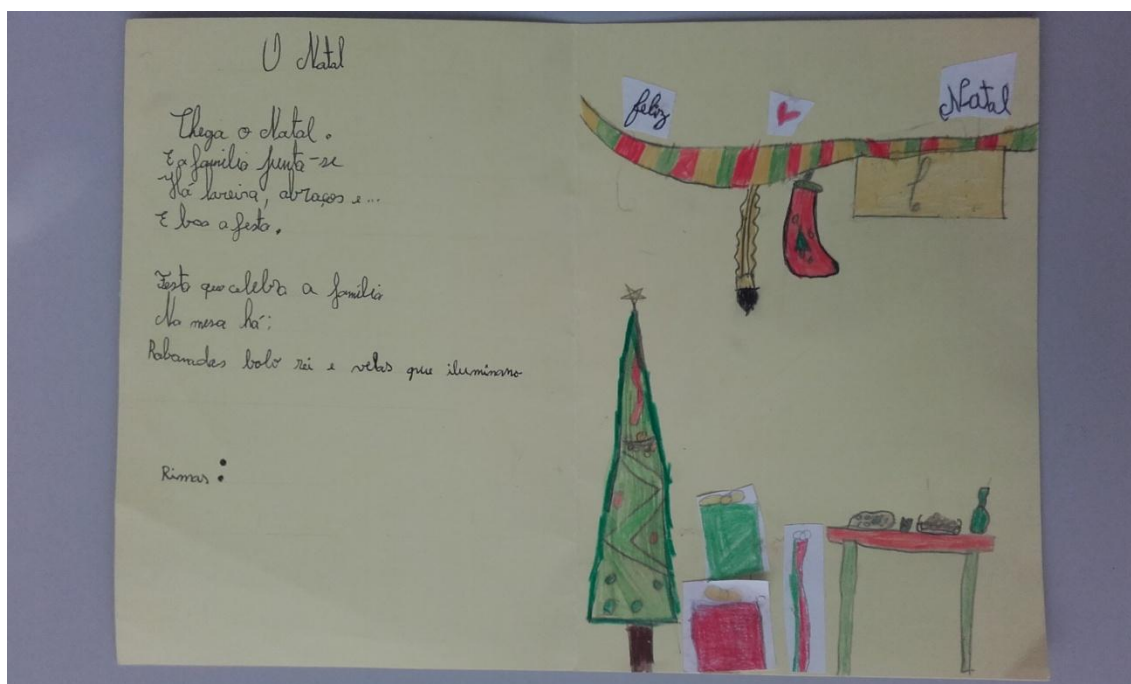 O Natal
Chega o Natal.
E a família junta-se
Há lareira, abraços e...
E boa a festa.
Festa que celebra a família
Na mesa há:
Rabanadas bolo rei e velas que iluminano
Rimas:
feliz
Natal